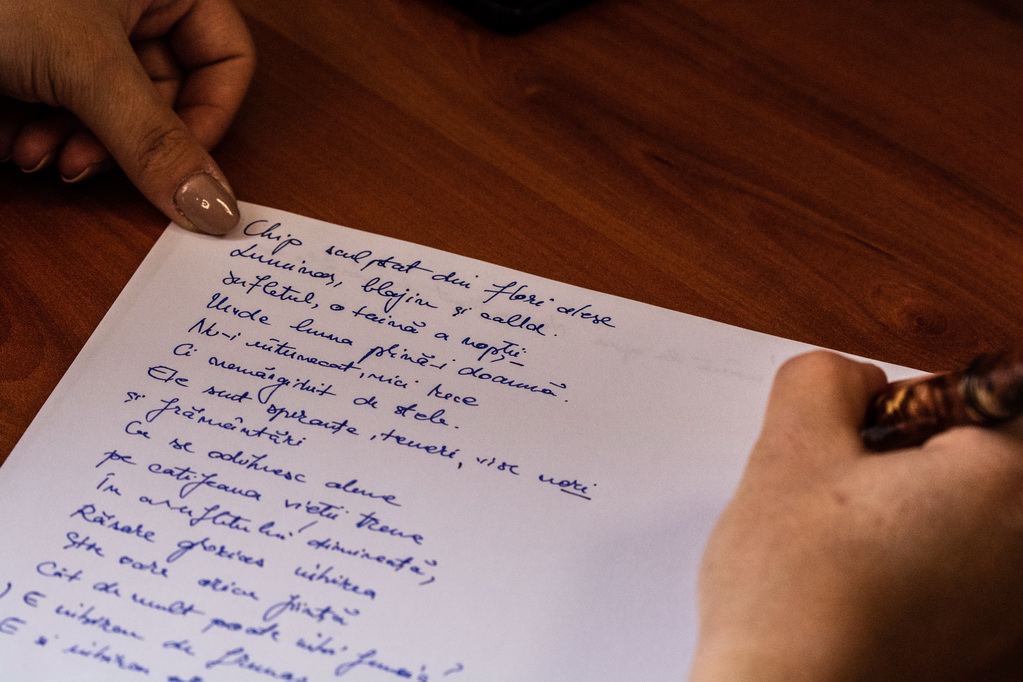 Chip sculptat din flori alese
Luminos, blajin și cald.
Sufletul, o taină a nopții
Unde luna plină-i doamnă.
Nu-i întunecat, nici rece
Ci nemărginit de stele.
Ele sunt speranțe, teneri, vise
și frământări
Ce se odihnesc alene
pe catifeaua vieții
În a sufletului dimineață,
Răsare iubirea
Știe oare orice ființă
Cât de mult poate iubi femeia?
E iubirea de
E și iubirea